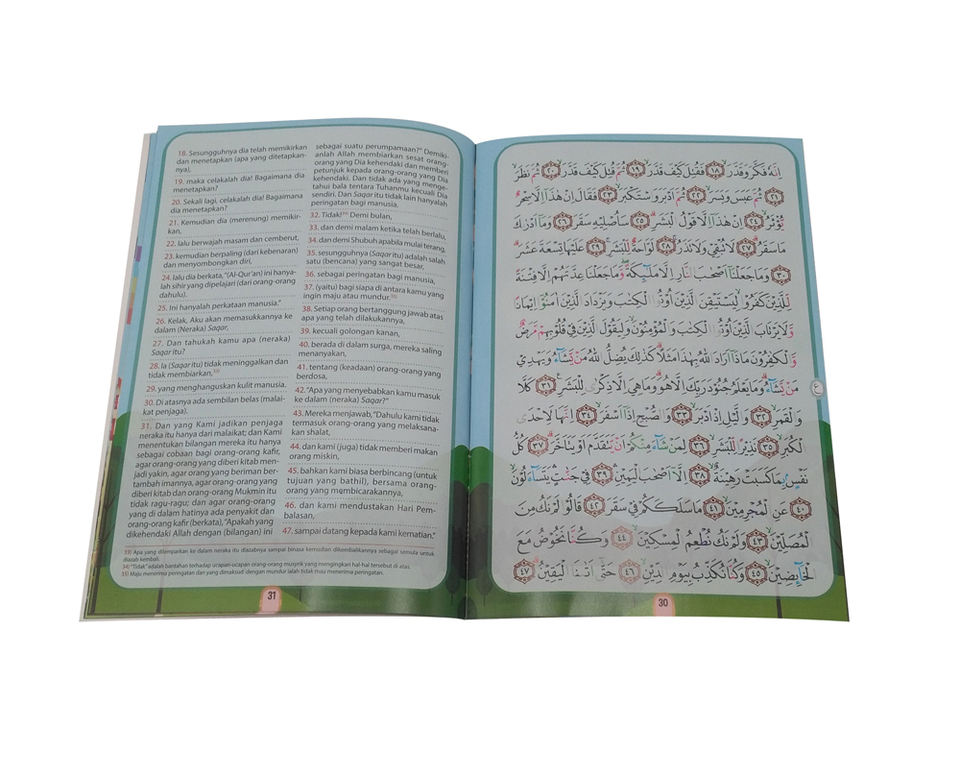 اِنَّهٗ فَكَّرَ وَقَدَّرَۙ ١٨ فَقُتِلَ كَيْفَ قَدَّرَۙ ١٩ ثُمَّ قُتِلَ كَيْفَ قَدَّرَۙ ٢٠ ثُمَّ نَظَرَۙ
٢١ ثُمَّ عَبَسَ وَبَسَرَۙ ٢٢ ثُمَّ اَدْبَرَ وَاسْتَكْبَرَۙ ٢٣ فَقَالَ اِنْ هٰذَآ اِلَّا سِحْرٌ
يُّؤْثَرُۙ ٢٤ اِنْ هٰذَآ اِلَّا قَوْلُ الْبَشَرِۗ ٢٥ سَاُصْلِيْهِ سَقَرَ ٢٦ وَمَآ اَدْرٰىكَ
مَا سَقَرُۗ ٢٧ لَا تُبْقِيْ وَلَا تَذَرُۚ ٢٨ لَوَّاحَةٌ لِّلْبَشَرِۚ ٢٩ عَلَيْهَا تِسْعَةَ عَشَرَۗ
٣٠ وَمَا جَعَلْنَآ اَصْحٰبَ النَّارِ اِلَّا مَلٰۤىِٕكَةًۖ وَّمَا جَعَلْنَا عِدَّتَهُمْ اِلَّا فِتْنَةً
لِّلَّذِيْنَ كَفَرُوْاۙ لِيَسْتَيْقِنَ الَّذِيْنَ اُوْتُوا الْكِتٰبَ وَيَزْدَادَ الَّذِيْنَ اٰمَنُوْٓا اِيْمَانًا
وَّلَا يَرْتَابَ الَّذِيْنَ اُوْتُوا الْكِتٰبَ وَالْمُؤْمِنُوْنَۙ وَلِيَقُوْلَ الَّذِيْنَ فِيْ قُلُوْبِهِمْ مَّرَضٌ
وَّالْكٰفِرُوْنَ مَاذَآ اَرَادَ اللّٰهُ بِهٰذَا مَثَلًاۗ كَذٰلِكَ يُضِلُّ اللّٰهُ مَنْ يَّشَاۤءُ وَيَهْدِيْ
مَنْ يَّشَاۤءُۗ وَمَا يَعْلَمُ جُنُوْدَ رَبِّكَ اِلَّا هُوَۗ وَمَا هِيَ اِلَّا ذِكْرٰى لِلْبَشَرِ ٣١ كَلَّا
وَالْقَمَرِۙ ٣٢ وَالَّيْلِ اِذْ اَدْبَرَۙ ٣٣ وَالصُّبْحِ اِذَآ اَسْفَرَۙ ٣٤ اِنَّهَا لَاِحْدَى
الْكُبَرِۙ ٣٥ نَذِيْرًا لِّلْبَشَرِۙ ٣٦ لِمَنْ شَاۤءَ مِنْكُمْ اَنْ يَّتَقَدَّمَ اَوْ يَتَاَخَّرَۗ ٣٧ كُلُّ
نَفْسٍۢ بِمَا كَسَبَتْ رَهِيْنَةٌۙ ٣٨ اِلَّآ اَصْحٰبَ الْيَمِيْنِۛ ٣٩ فِيْ جَنّٰتٍۛ يَتَسَاۤءَلُوْنَۙ
٤٠ عَنِ الْمُجْرِمِيْنَۙ ٤١ مَا سَلَكَكُمْ فِيْ سَقَرَ ٤٢ قَالُوْا لَمْ نَكُ مِنَ
الْمُصَلِّيْنَۙ ٤٣ وَلَمْ نَكُ نُطْعِمُ الْمِسْكِيْنَۙ ٤٤ وَكُنَّا نَخُوْضُ مَعَ
الْخَاۤىِٕضِيْنَۙ ٤٥ وَكُنَّا نُكَذِّبُ بِيَوْمِ الدِّيْنِۙ ٤٦ حَتّٰىٓ اَتٰىنَا الْيَقِيْنُۗ ٤٧
30
18. Sesungguhnya dia telah memikirkan
dan menetapkan (apa yang ditetapkan-
nya),
19. maka celakalah dia! Bagaimana dia
menetapkan?
20. Sekali lagi, celakalah dia! Bagaimana
dia menetapkan?
21. Kemudian dia (merenung) memikir-
kan,
22. lalu berwajah masam dan cemberut,
23. kemudian berpaling (dari kebenaran)
dan menyombongkan diri,
24. lalu dia berkata, "(Al-Qur'an) ini hanya-
lah sihir yang dipelajari (dari orang-orang
dahulu).
25. Ini hanyalah perkataan manusia."
26. Kelak, Aku akan memasukkannya ke
dalam (Neraka) Saqar,
27. Dan tahukah kamu apa (neraka)
Saqar itu?
28. Ia (Saqar itu) tidak meninggalkan dan
tidak membiarkan,33)
29. yang menghanguskan kulit manusia.
30. Di atasnya ada sembilan belas (malai-
kat penjaga).
31. Dan yang Kami jadikan penjaga
neraka itu hanya dari malaikat; dan Kami
menentukan bilangan mereka itu hanya
sebagai cobaan bagi orang-orang kafir,
agar orang-orang yang diberi kitab men-
jadi yakin, agar orang yang beriman ber-
tambah imannya, agar orang-orang yang
diberi kitab dan orang-orang Mukmin itu
tidak ragu-ragu; dan agar orang-orang
yang di dalam hatinya ada penyakit dan
orang-orang kafir (berkata), "Apakah yang
dikehendaki Allah dengan (bilangan) ini
sebagai suatu perumpamaan?" Demiki-
anlah Allah membiarkan sesat orang-
orang yang Dia kehendaki dan memberi
petunjuk kepada orang-orang yang Dia
kehendaki. Dan tidak ada yang menge-
tahui bala tentara Tuhanmu kecuali Dia
sendiri. Dan Saqar itu tidak lain hanyalah
peringatan bagi manusia.
32. Tidak!34) Demi bulan,
33. dan demi malam ketika telah berlalu,
34. dan demi Shubuh apabila mulai terang,
35. sesungguhnya (Saqar itu) adalah salah
satu (bencana) yang sangat besar,
36. sebagai peringatan bagi manusia,
37. (yaitu) bagi siapa di antara kamu yang
ingin maju atau mundur.35)
38. Setiap orang bertanggung jawab atas
apa yang telah dilakukannya,
39. kecuali golongan kanan,
40. berada di dalam surga, mereka saling
menanyakan,
41. tentang (keadaan) orang-orang yang
berdosa,
42. "Apa yang menyebabkan kamu masuk
ke dalam (neraka) Saqar?"
43. Mereka menjawab, "Dahulu kami tidak
termasuk orang-orang yang melaksana-
kan shalat,
44. dan kami (juga) tidak memberi makan
orang miskin,
45. bahkan kami biasa berbincang (untuk
tujuan yang bathil), bersama orang-
orang yang membicarakannya,
46. dan kami mendustakan Hari Pem-
balasan,
47. sampai datang kepada kami kematian."
33) Apa yang dilemparkan ke dalam neraka itu diazabnya sampai binasa kemudian dikembalikannya sebagai semula untuk
diazab kembali.
34) "Tidak" adalah bantahan terhadap ucapan-ucapan orang-orang musyrik yang mengingkari hal-hal tersebut di atas.
35) Maju menerima peringatan dan yang dimaksud dengan mundur ialah tidak mau menerima peringatan.
31